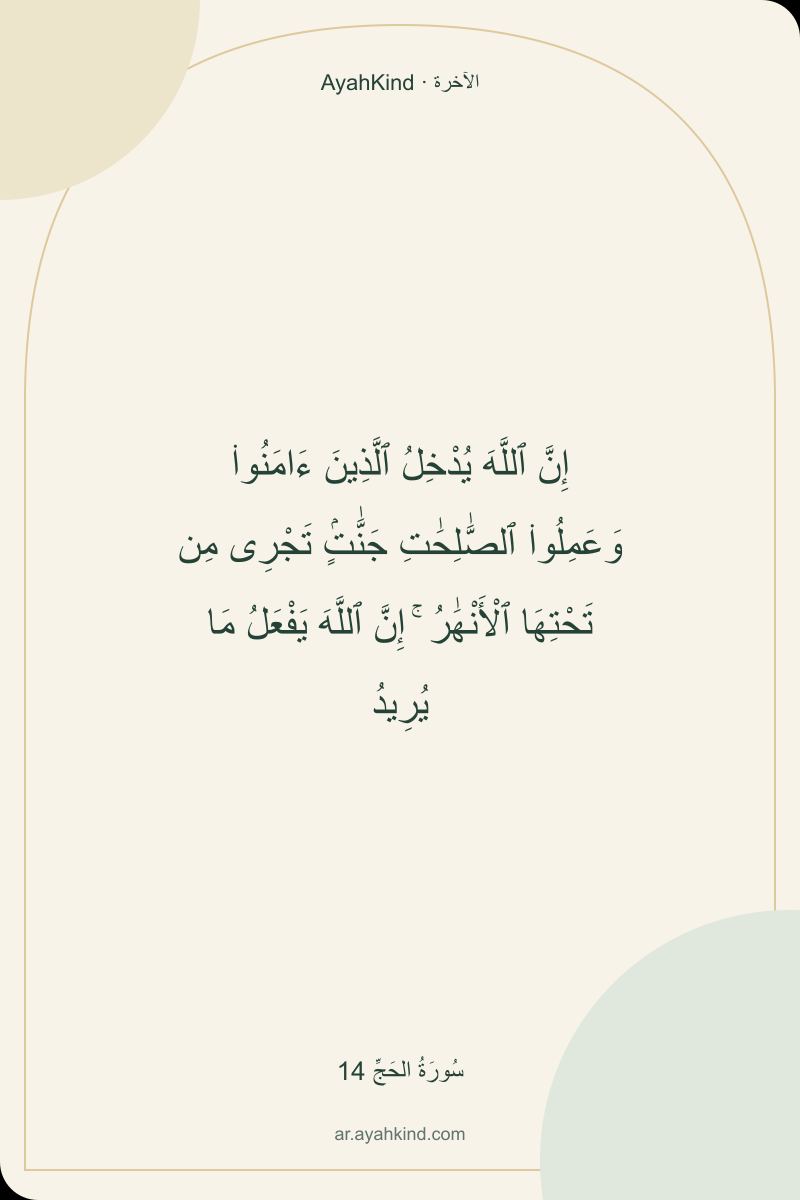 AyahKind · الآخرة
إِنَّ ٱللَّهَ يُدْخِلُ ٱلَّذِينَ ءَامَنُوا۟
وَعَمِلُوا۟ ٱلصَّٰلِحَٰتِ جَنَّٰتٍۢ تَجْرِى مِن
تَحْتِهَا ٱلْأَنْهَٰرُ ۚ إِنَّ ٱللَّهَ يَفْعَلُ مَا
يُرِيدُ
سُورَةُ الحَجِّ 14
ar.ayahkind.com